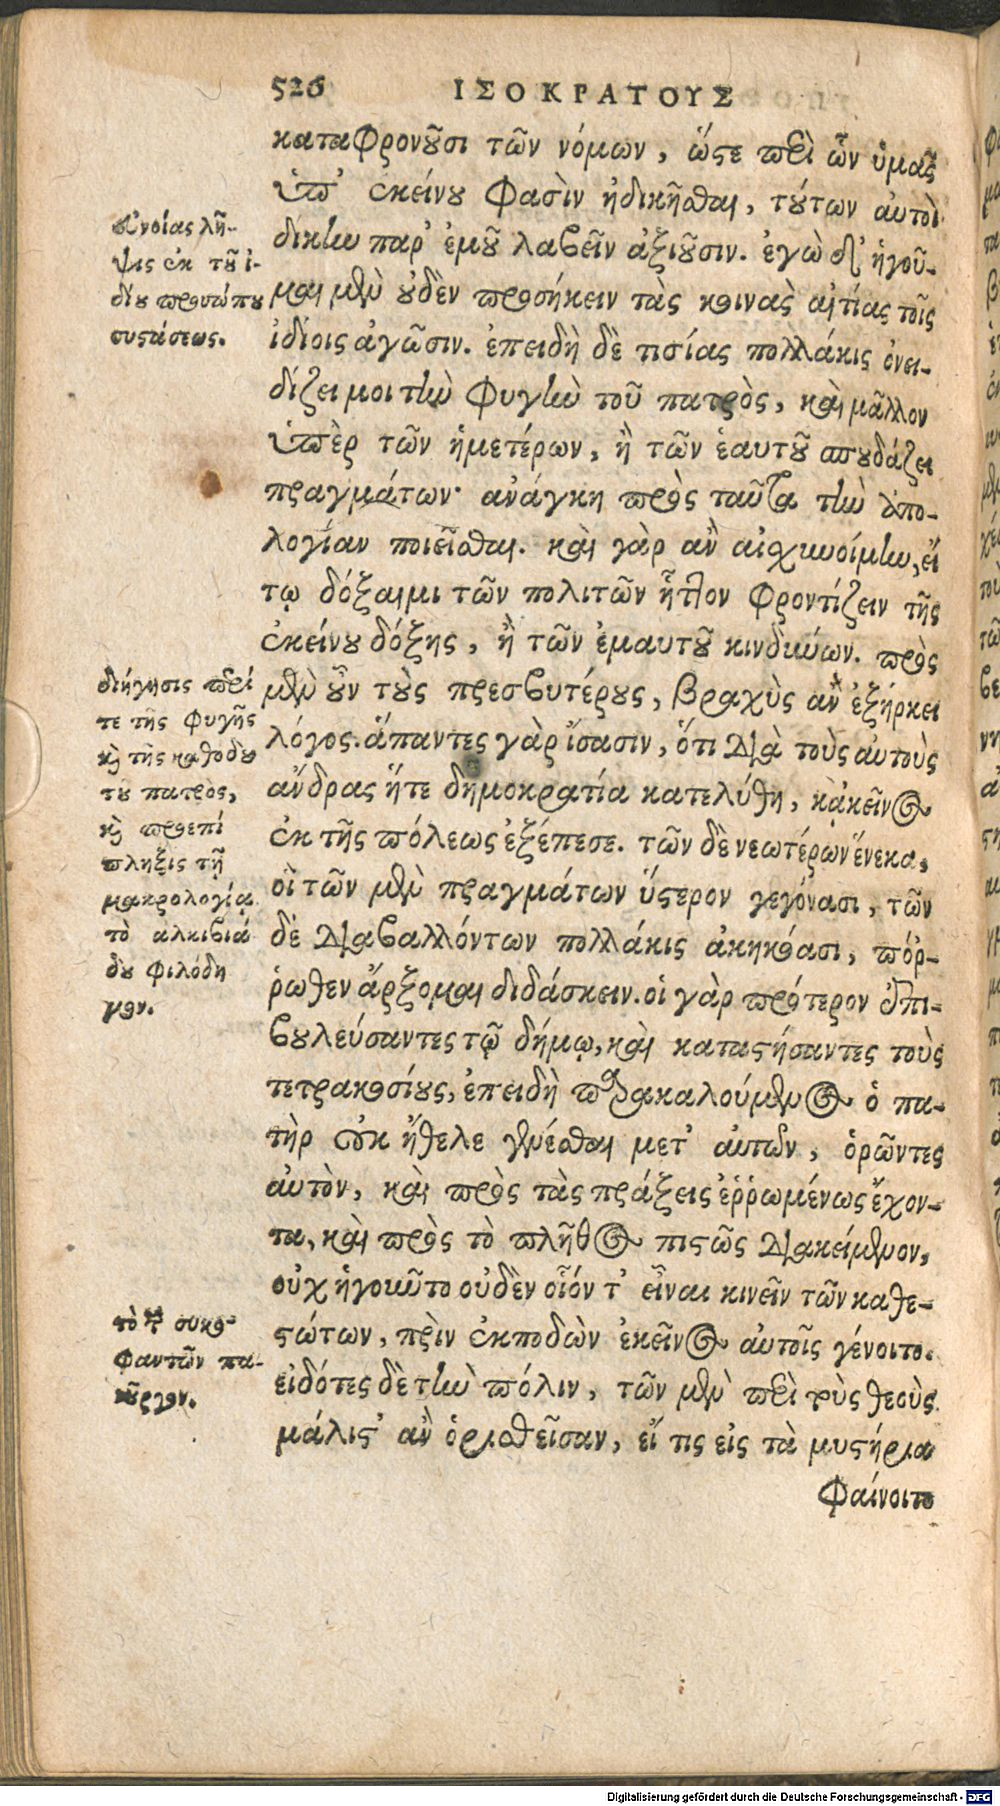 526 ΙΣΟΚΡΑΤΟΥΣ
καταφρονοῦσι τῶν νόμων, ὥστε περὶ ὧν ὑμᾶς
ὑπ' ἐκείνου φασὶν ἠδικῆσθαι, τούτων αὐτοὶ
δίκην παρ' ἐμοῦ λαβεῖν ἀξιοῦσιν. ἐγὼ δ' ἡγοῦ-
μαι μὲν οὐδὲν προσήκειν τὰς κοινὰς αἰτίας τοῖς
ἰδίοις ἀγῶσιν. ἐπειδὴ δὲ τισίας πολλάκις ὀνει-
δίζει μοι τὴν φυγὴν τοῦ πατρὸς, καὶ μᾶλλον
ὑπὲρ τῶν ἡμετέρων, ἢ τῶν ἑαυτοῦ σπουδάζει
πραγμάτων· ἀνάγκη πρὸς ταῦτα τὴν ἀπο-
λογίαν ποιεῖσθαι. καὶ γὰρ ἂν αἰσχυνοίμην, εἴ
τῳ δόξαιμι τῶν πολιτῶν ἧττον φροντίζειν τῆς
ἐκείνου δόξης, ἢ τῶν ἐμαυτοῦ κινδύνων. πρὸς
μὲν οὖν τοὺς πρεσβυτέρους, βραχὺς ἂν ἐξήρκει
λόγος. ἅπαντες γὰρ ἴσασιν, ὅτι διὰ τοὺς αὐτοὺς
ἄνδρας ἥτε δημοκρατία κατελύθη, κἀκεῖνος
ἐκ τῆς πόλεως ἐξέπεσε. τῶν δὲ νεωτέρων ἕνεκα,
οἳ τῶν μὲν πραγμάτων ὕστερον γεγόνασι, τῶν
δὲ διαβαλλόντων πολλάκις ἀκηκόασι, πόρ-
ῥωθεν ἄρξομαι διδάσκειν. οἱ γὰρ πρότερον ἐπι-
βουλεύσαντες τῷ δήμῳ, καὶ καταστήσαντες τοὺς
τετρακοσίους, ἐπειδὴ παρακαλούμενος ὁ πα-
τὴρ οὐκ ἤθελε γενέσθαι μετ' αὐτῶν, ὁρῶντες
αὐτὸν, καὶ πρὸς τὰς πράξεις ἐῤῥωμένως ἔχον-
τα, καὶ πρὸς τὸ πλῆθος πιστῶς διακείμενον,
οὐχ ἡγοῦντο οὐδὲν οἷόν τ' εἶναι κινεῖν τῶν καθε-
στώτων, πρὶν ἐκποδὼν ἐκεῖνος αὐτοῖς γένοιτο.
εἰδότες δὲ τὴν πόλιν, τῶν μὲν περὶ τοὺς θεοὺς
μάλιστ' ἂν ὀργισθεῖσαν, εἴ τις εἰς τὰ μυστήρια
φαίνοιτο
εὐνοίας λῆ-
ψις ἐκ τοῦ ἰ-
δίου προσώπου
συστάσεως.
διήγησις περί
τε τῆς φυγῆς
καὶ τῆς καθόδου
τοῦ πατρὸς,
καὶ προεπί
πληξις τῇ
μακρολογίᾳ
τὸ ἀλκιβιά
δου φιλόδη
μον.
τὸ τῶν συκο-
φαντῶν πα-
νοῦργον.
Digitalisierung gefördert durch die Deutsche Forschungsgemeinschaft - DFG